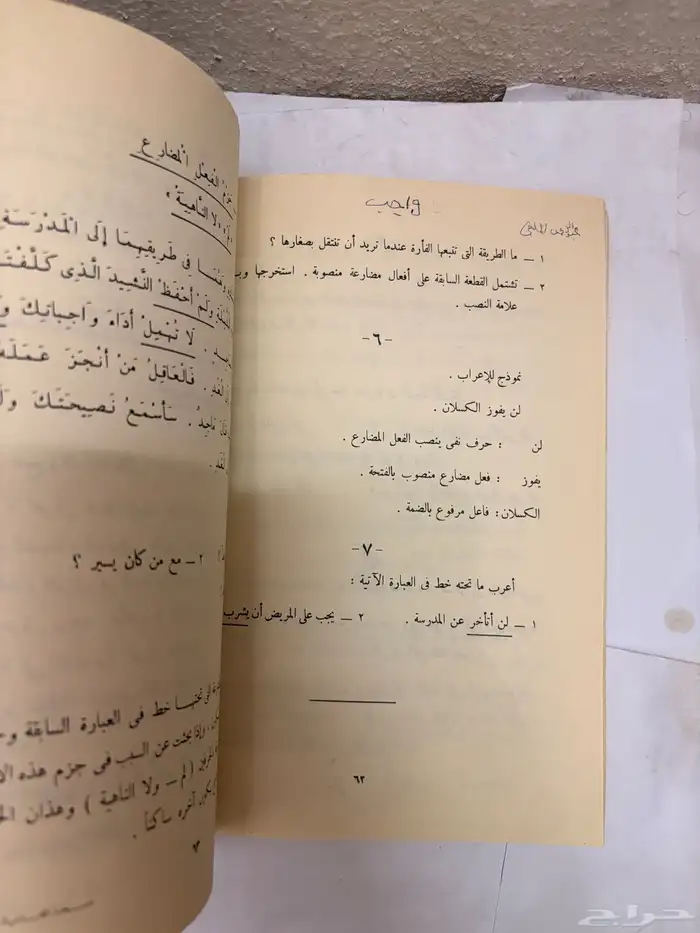 واجب
١ — ما الطريقة التى تتبعها الفأرة عندما تريد أن تنتقل بصغارها ؟
٢ — تشتمل القطعة السابقة على أفعال مضارعة منصوبة . استخرجها
علامة النصب .
-٦-
نموذج للإعراب .
لن يفوز الكسلان .
لن : حرف نفى ينصب الفعل المضارع .
يفوز : فعل مضارع منصوب بالفتحة .
الكسلان : فاعل مرفوع بالضمة .
-٧-
أعرب ما تحته خط فى العبارة الآتية :
١ — لن أتأخر عن المدرسة . ٢ — يجب على المريض أن يشرب
٦٢
الْفِعْلِ الْمُضَارِعِ
« لَا النَّاهِيَةُ »
فِى طَرِيقِهِمَا إِلَى الْمَدْرَسَةِ
وَلَمْ أَحْفَظْ النَّشِيدَ الَّذِى
لَا تُهْمِلْ أَدَاءَ وَاجِبَاتِكَ
فَالْعَاقِلُ مَنْ أَنْجَزَ عَمَلَهُ
سَأَسْمَعُ نَصِيحَتَكَ
٢ — مع من كان يسير ؟
تحتها خط فى العبارة السابقة
وإذا بحثت عن السبب فى جزم هذه
( لم — ولا الناهية ) وهذان
آخره ساكناً .
حراج